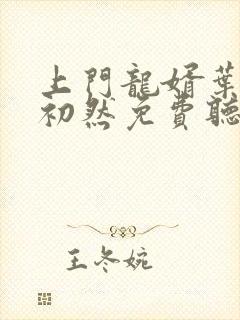 上門龍婿葉
初然免費聽
王冬婉